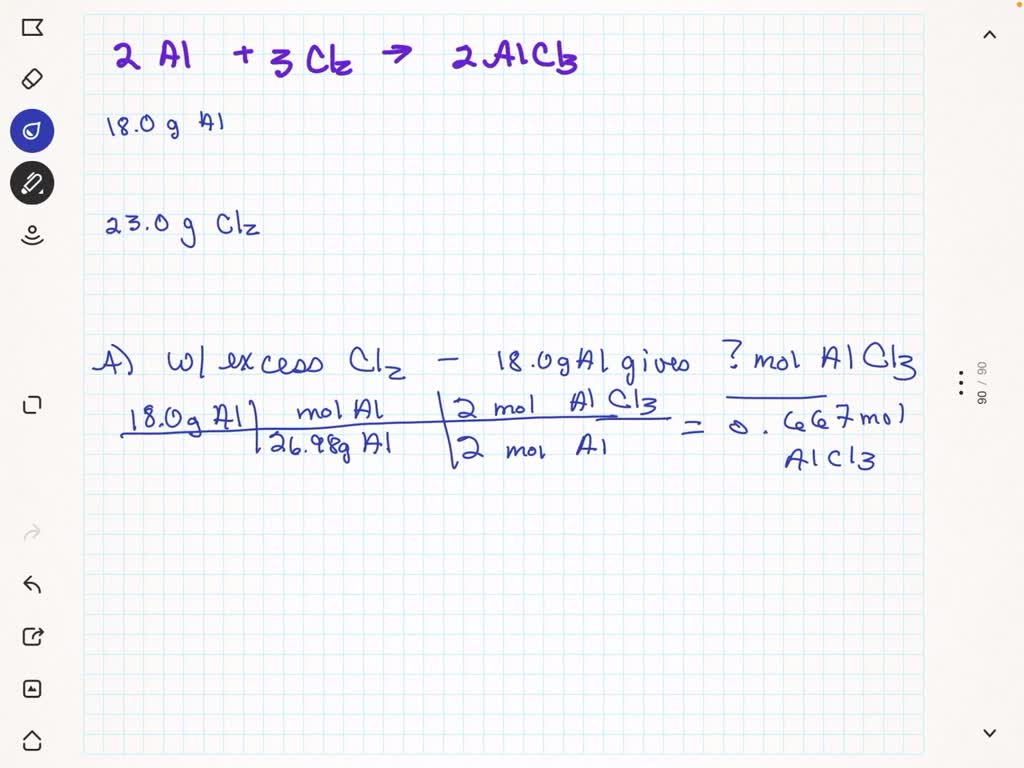 2 Al + 3 Cl2 → 2 AlCl3
18.0 g Al
23.0 g Cl2
A) w/ excess Cl2 - 18.0g Al gives ? mol AlCl3
18.0g Al | mol Al | 2 mol AlCl3 = 0.667 mol
26.98g Al | 2 mol Al AlCl3
90 / 90